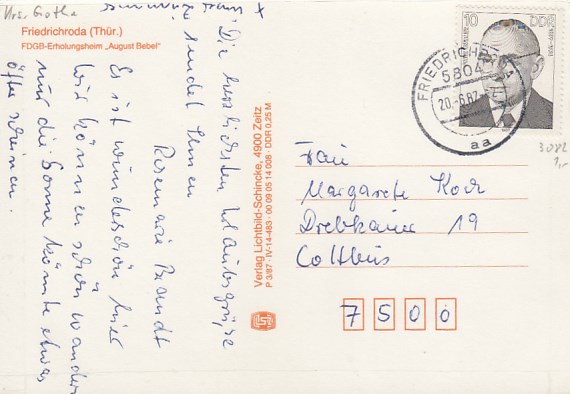 Krs. Gotha
Friedrichroda (Thür.)
FDGB-Erholungsheim „August Bebel"
Die herzlichsten Urlaubsgrüße
sendet Ihnen
Rosemarie Brandt
Es ist wunderschön hier
wir können schön wandern
nur die Sonne könnte etwas
öfter scheinen.
Verlag Lichtbild-Schincke, 4900 Zeitz
P 3/87 · IV-14-483 · 00 09 05 14 008 · DDR 0,25 M
10 DDR
FRIEDRICHRODA
5804
20.-6.87
aa
3082
1,-
Frau
Margarete Koch
19
Cottbus
7500